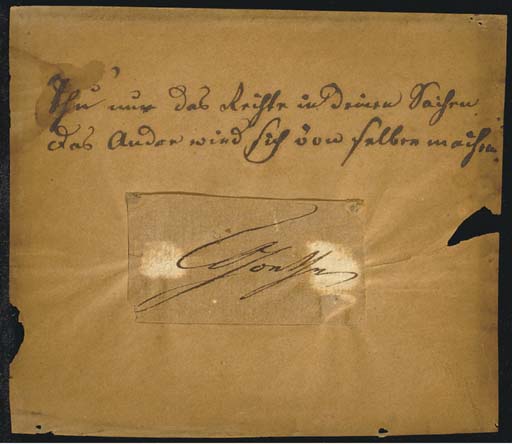 Thu' nur das Rechte in deinen Sachen
Das Andre wird sich von selber machen
Goethe